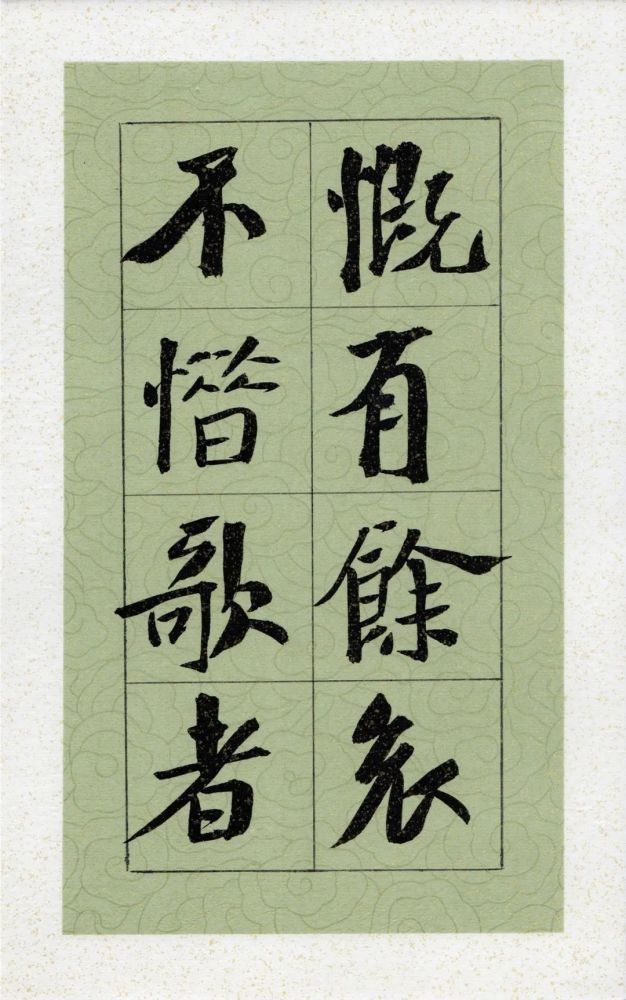 慨有餘哀
不惜歌者